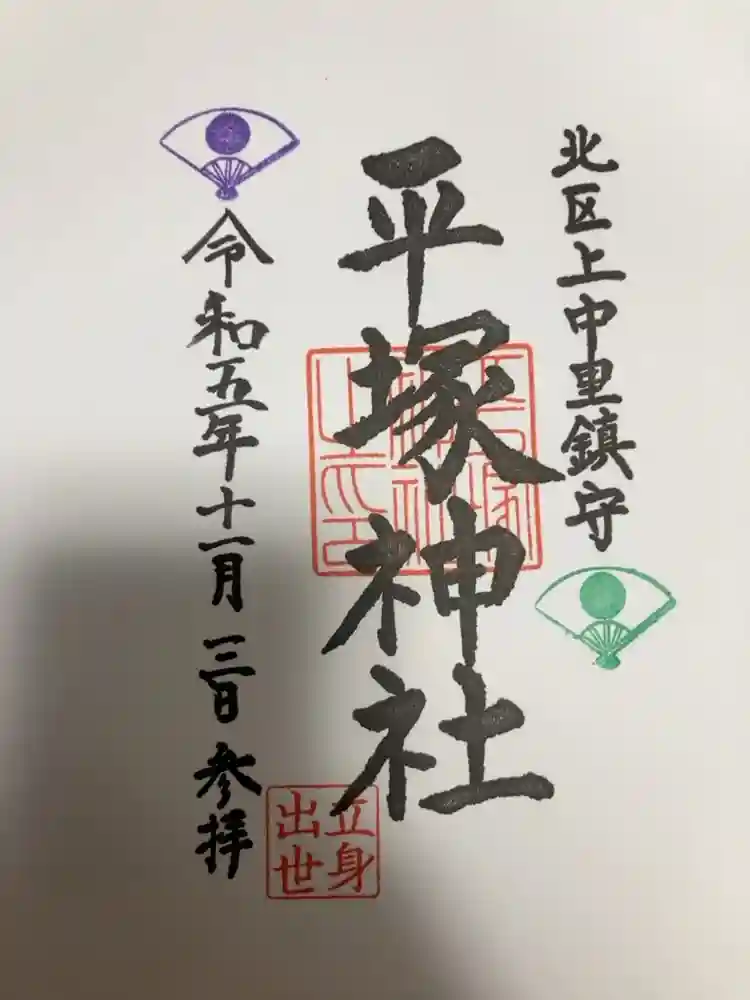 北区上中里鎮守
平塚神社
平塚神社之印
立身出世
令和五年十一月三日参拝